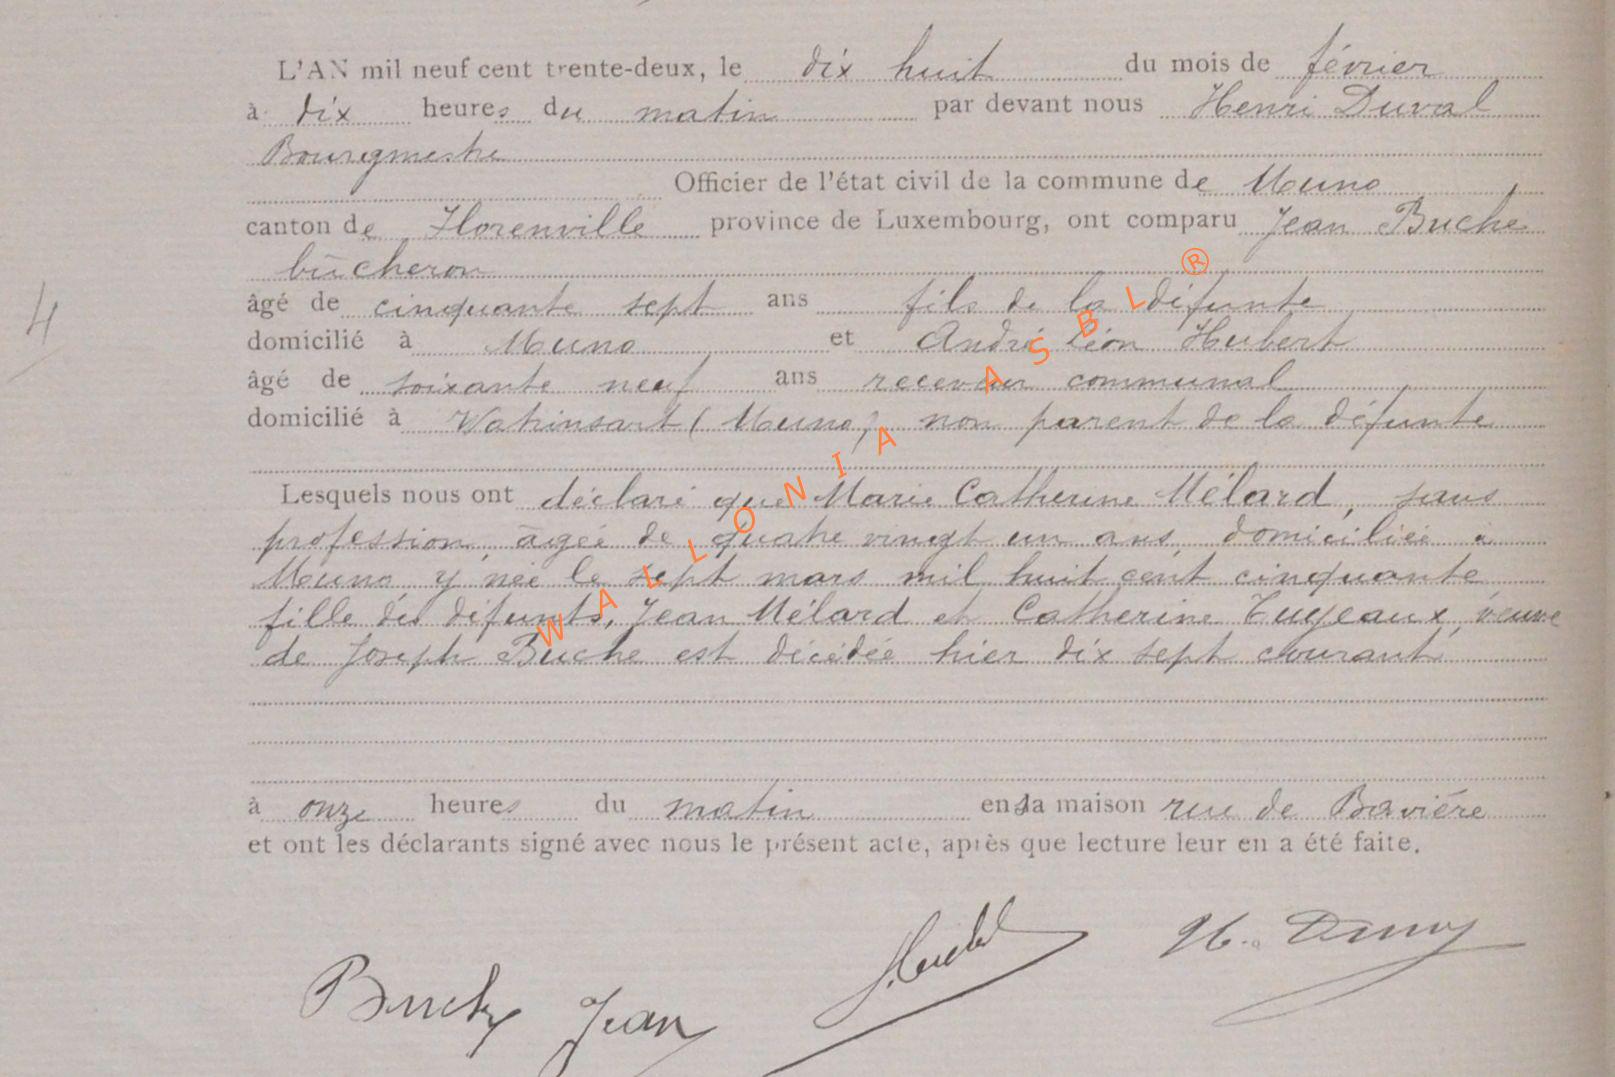 L'AN mil neuf cent trente-deux, le dix huit du mois de février
à dix heures du matin par devant nous Henri Duval
Bourgmestre
Officier de l'état civil de la commune de Muno
canton de Florenville province de Luxembourg, ont comparu Jean Buche
bûcheron
âgé de cinquante sept ans fils de la défunte
domicilié à Muno et André Léon Hubert
âgé de soixante neuf ans receveur communal
domicilié à Watrinsart (Muno) non parent de la défunte
Lesquels nous ont déclaré que Marie Catherine Mélard, sans
profession, âgée de quatre vingt un ans, domiciliée à
Muno y née le sept mars mil huit cent cinquante
fille des défunts, Jean Mélard et Catherine veuve
de Joseph Buche est décédée hier dix sept courant
à onze heures du matin en sa maison rue de Bavière
et ont les déclarants signé avec nous le présent acte, après que lecture leur en a été faite.
4
WALLONIA ASBL ®
Buche Jean